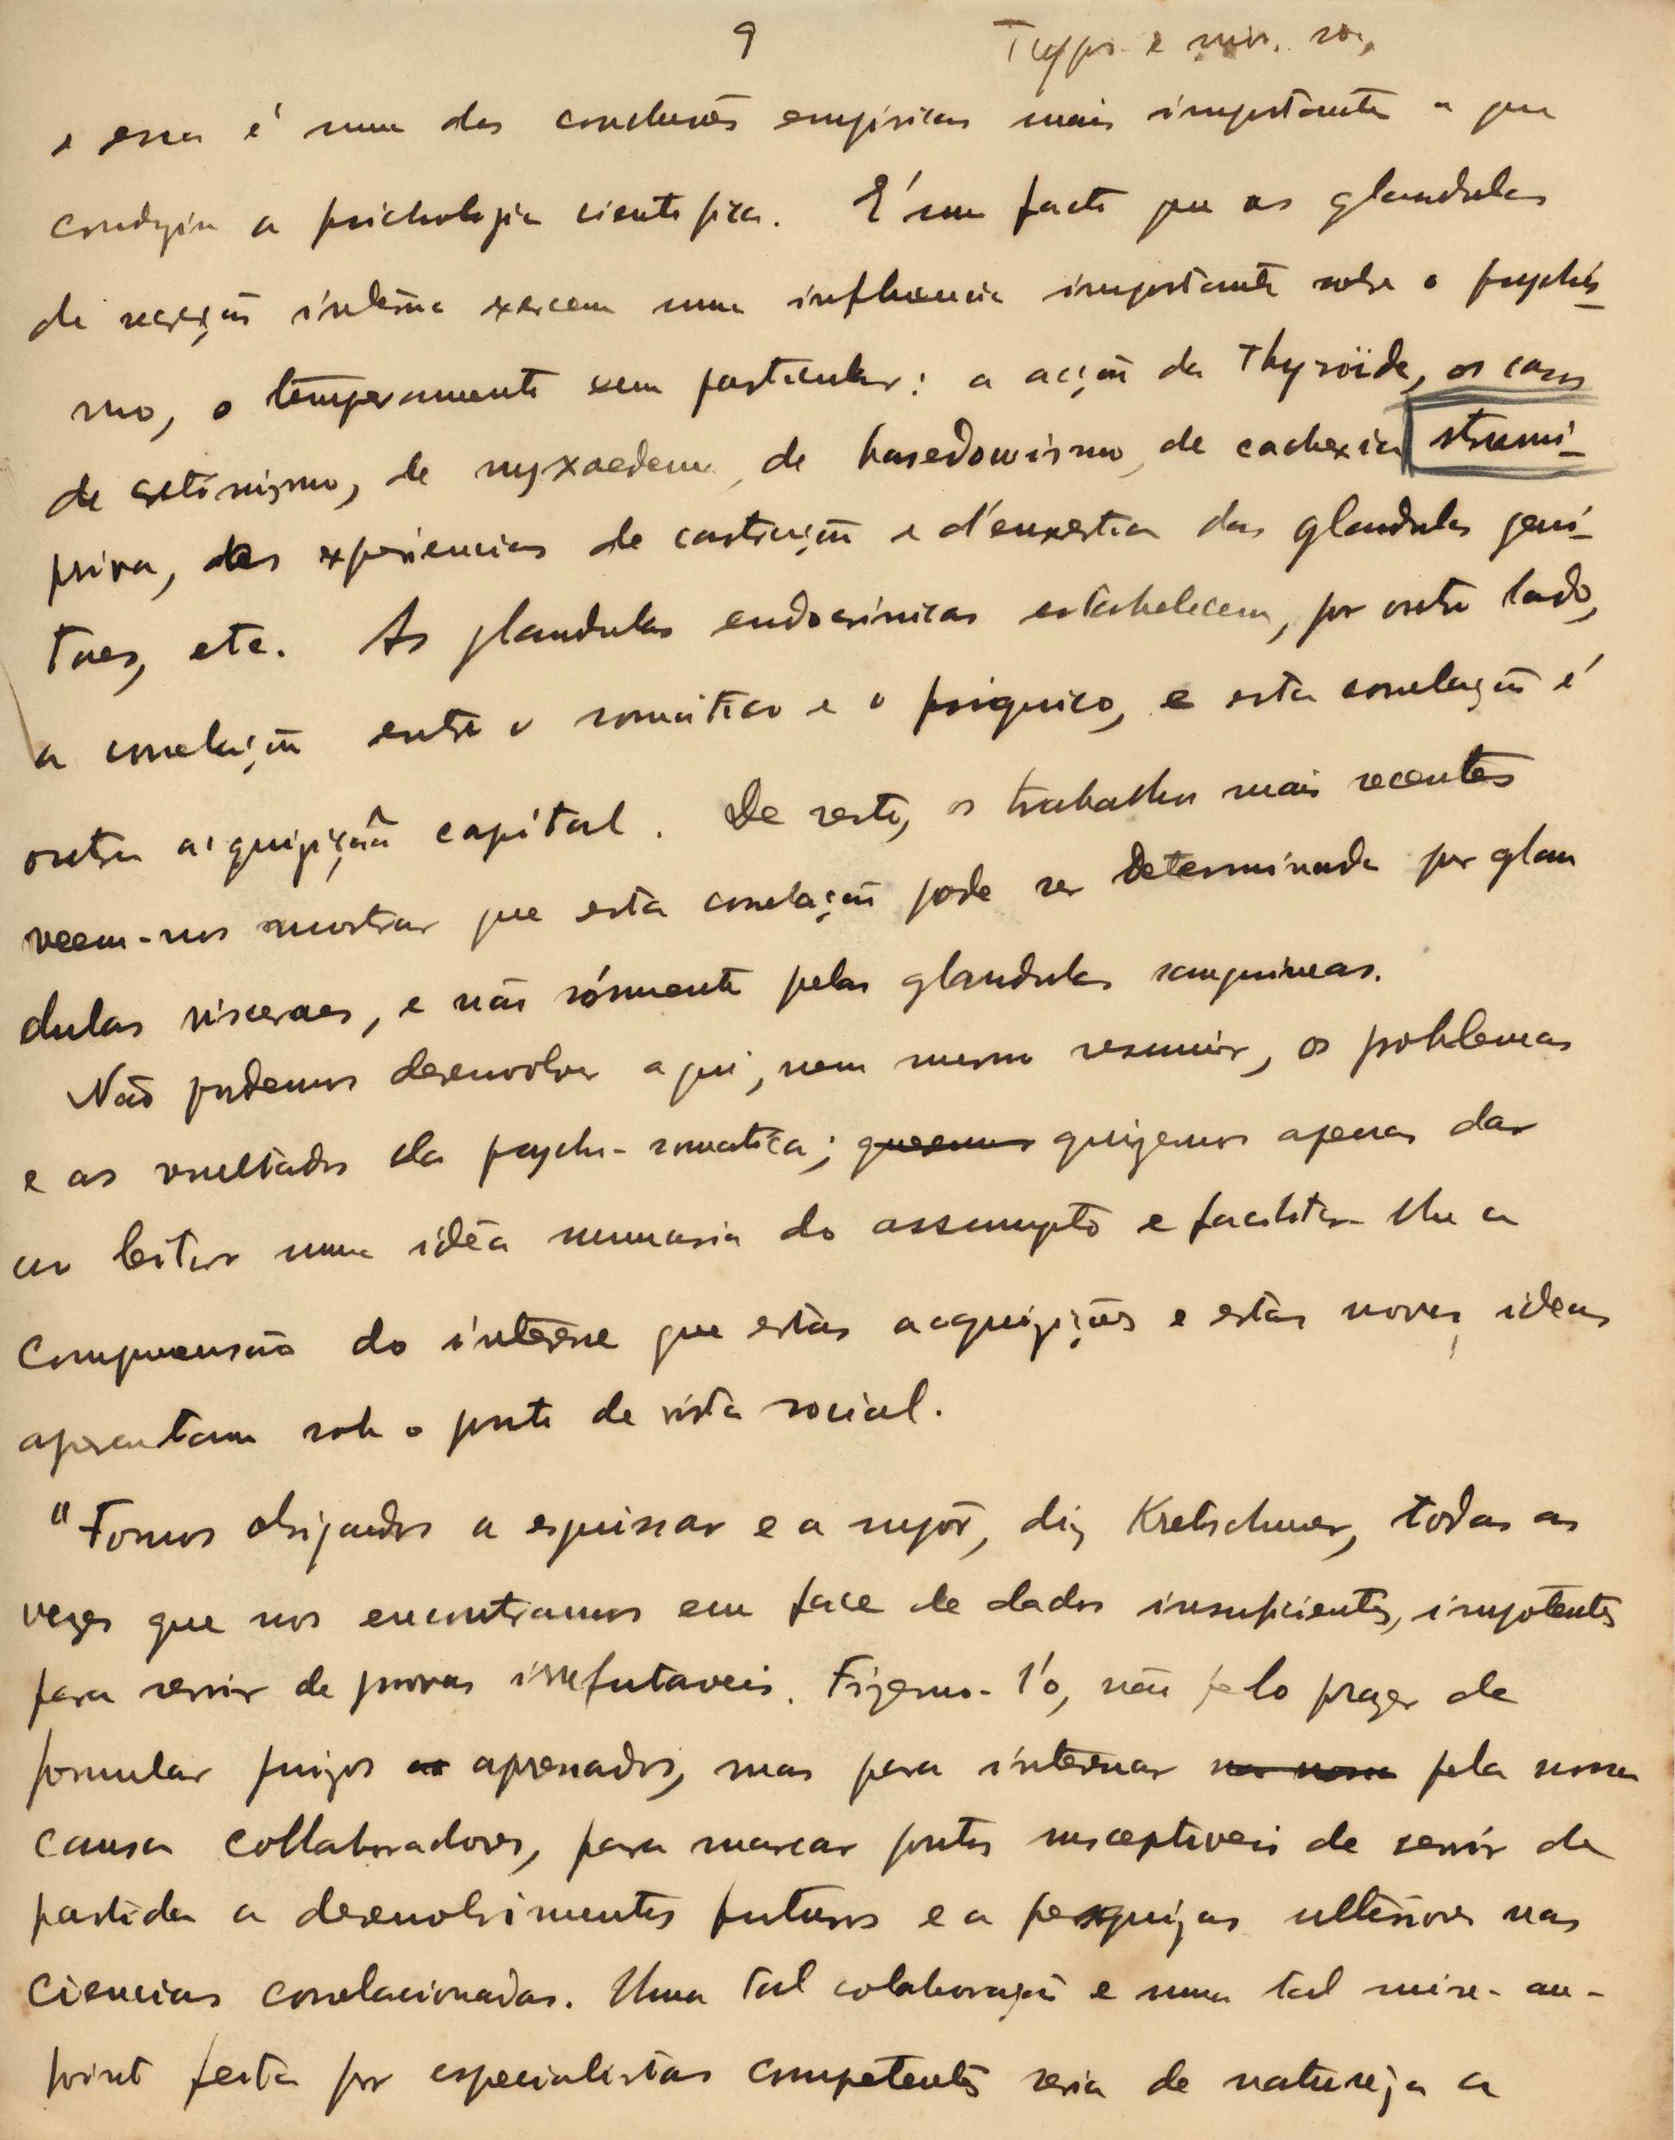 9
e essa é uma das conclusões empiricas mais importantes a que
conduziu a psichologia scientifica. É um facto que as glandulas
de secreção interna exercem uma influencia importante sobre o psychis-
mo, o temperamento em particular: a acção da Thyroïde, os casos
de cretinismo, de myxoedema, de basedowismo, de cachexia strumi-
priva, das experiencias de castração e d'enxertia das glandulas geni-
taes, etc. As glandulas endocrinicas estabelecem, por outro lado,
a correlação entre o somatico e o psiquico, e esta correlação é
outra acquizição capital. De resto, os trabalhos mais recentes
veem-nos mostrar que esta correlação pode ser determinada por glan
dulas visceraes, e não sómente pelas glandulas sanguineas.
Não podemos desenvolver aqui, nem mesmo resumir, os problemas
e as resultados da psycho-somatica; queremos quizemos apenas dar
ao leitor uma idéa summaria do assumpto e facilitar-lhe a
comprensão do interesse que estas acquizições e estas novas ideas
apresentam sob o ponto de vista social.
"Fomos obrigados a esquissar e a supôr, diz Kretschmer, todas as
vezes que nos encontramos em face de dados insuficientes, impotentes
para servir de provas irrefutaveis. Fizemo-l'o, não pelo prazer de
formular juizos apressados, mas para interessar pela nossa
causa collaboradores, para marcar pontos susceptiveis de servir de
partida a desenvolvimentos futuros e a pesquizas ulteriores nas
ciencias correlacionadas. Uma tal colaboração e uma tal mise-au-
point feita por especialistas competentes seria de natureza a